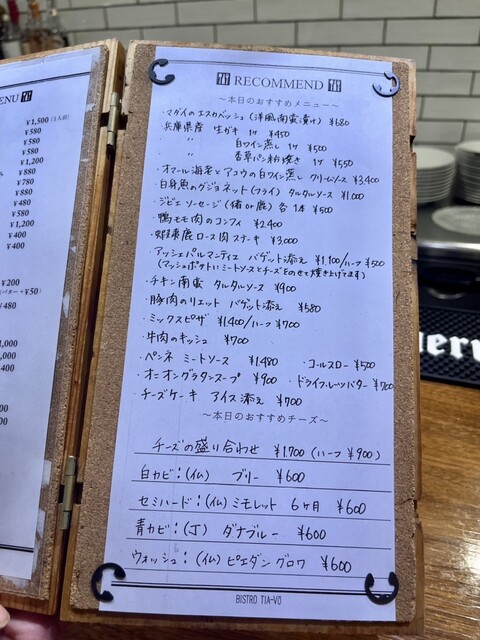 ENU
¥1,500 (1人前)
¥580
¥580
¥1,200
¥880
¥780
¥880
¥480
¥580
¥1,200
¥400
¥400
¥200
バター +¥50)
¥480
,000
,000
¥400
¥400
RECOMMEND
～本日のおすすめメニュー～
・マダイのエスカベッシュ (洋風南蛮漬け) ¥680
・兵庫県産 生ガキ 1ケ ¥450
〃 白ワイン蒸し 1ケ ¥500
〃 香草パン粉焼き 1ケ ¥550
・オマール海老とアコウの白ワイン蒸し クリームソース ¥3,400
・白身魚のグジョネット(フライ) タルタルソース ¥1,000
・ジビエ ソーセージ (猪 or 鹿) 各 1本 ¥500
・鴨モモ肉のコンフィ ¥2,400
・蝦夷鹿ロース肉ステーキ ¥3,000
・アッシェパルマンティエ バゲット添え ¥1,100/ハーフ ¥500
(マッシュポテトにミートソースとチーズをのせて焼き上げてます)
・チキン南蛮 タルタルソース ¥900
・豚肉のリエット バゲット添え ¥580
・ミックスピザ ¥1,400/ハーフ ¥700
・牛肉のキッシュ ¥700
・ペンネ ミートソース ¥1,480 ・コールスロー ¥500
・オニオングラタンスープ ¥900 ・ドライフルーツバター ¥700
・チーズケーキ アイス添え ¥700
～本日のおすすめチーズ～
チーズの盛り合わせ ¥1,700 (ハーフ ¥900)
白カビ:(仏) ブリー ¥600
セミハード:(仏) ミモレット 6ヶ月 ¥600
青カビ:(丁) ダナブルー ¥600
ウォッシュ:(仏) ピエダングロワ ¥600
BISTRO TIA-VO